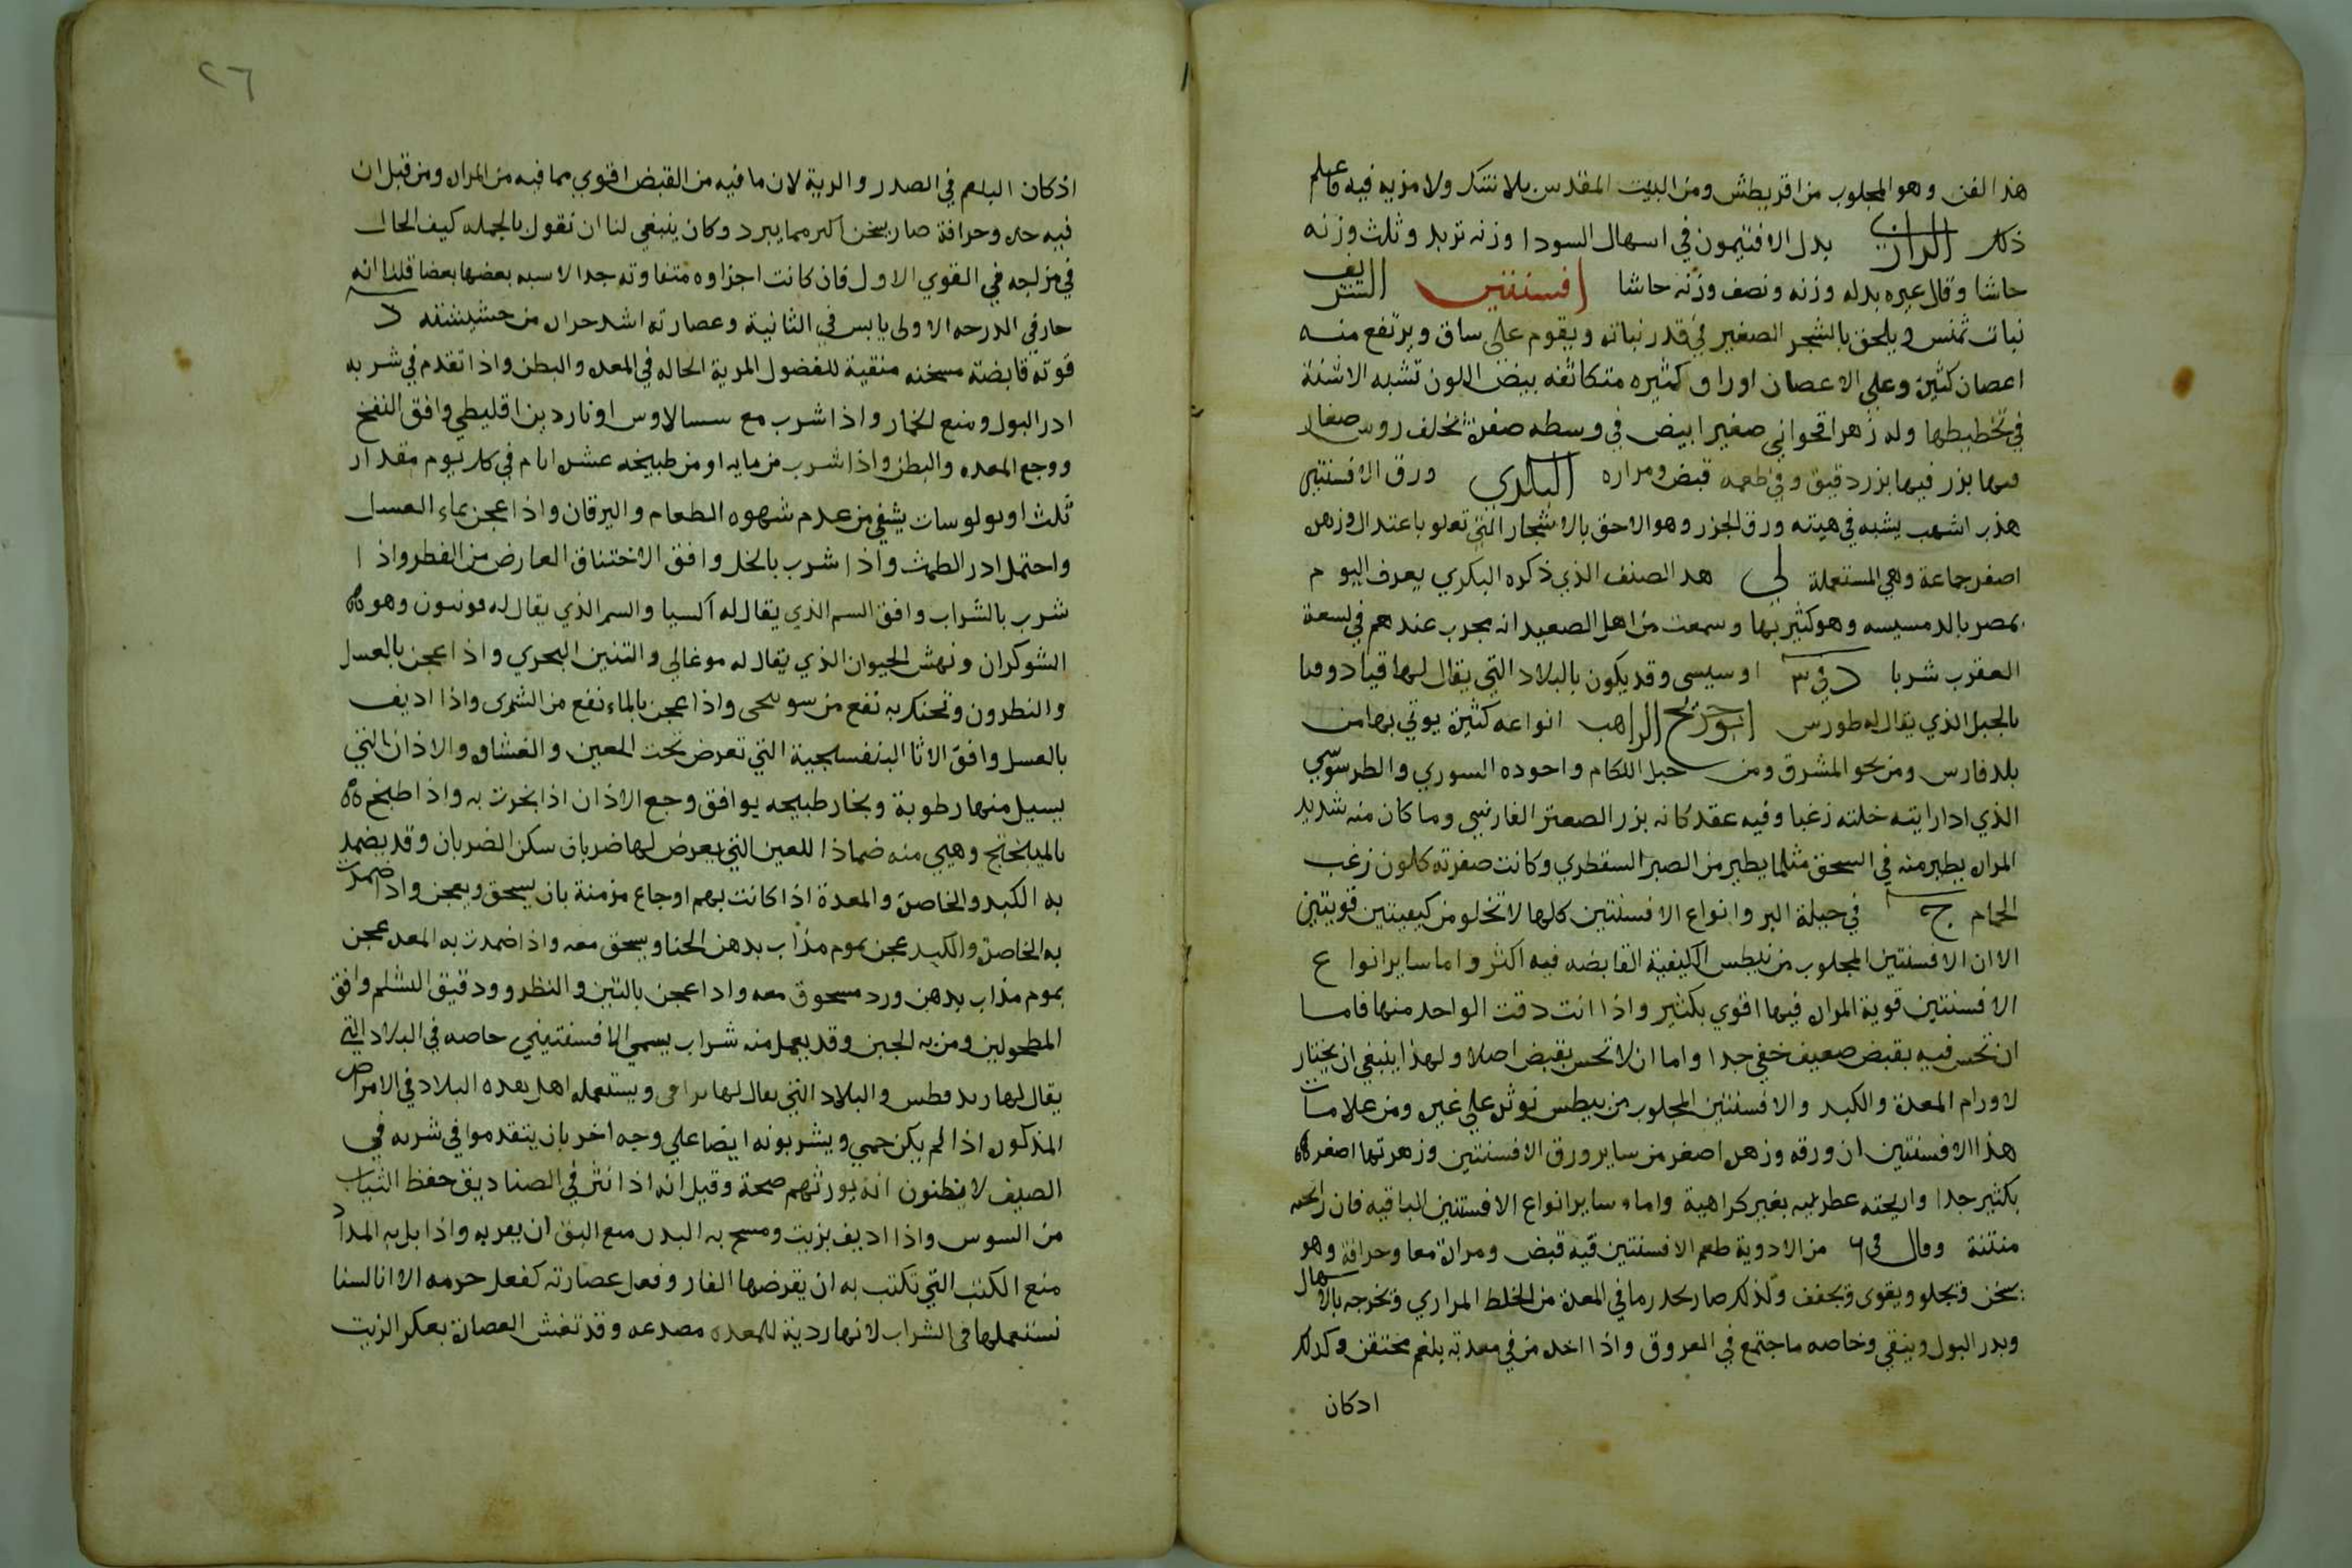 هذا الفن وهو المجلوب من اقريطش ومن البيت المقدس بلا شك ولا مزيه فيه فاعلم
ذلك الرازي بدل الافتيمون في اسهال السودا وزنه تربد وثلث وزنه
حاشا وقال غيره بدله وزنه ونصف وزنه حاشا افسنتين الشريف
نبات تمنس ويلحق بالشجر الصغير في قدر نباته ويقوم على ساق ويرتفع منه
اعصان كثيرة وعلي الاعصان اوراق كثيره متكاثفه بيض اللون تشبه الاشنة
في تخطيطها وله زهر اقحواني صغير ابيض في وسطه صفرة تخلف روس صغار
فيها بزر فيها بزر دقيق وفي طعمه قبض ومراره البكري ورق الافسنتين
هدب اشهب يشبه في هيته ورق الجزر وهو الاحق بالاشجار التي تعلو باعتدال وزهره
اصفر جماعة وهي المستعملة لي هدا الصنف الذي ذكره البكري يعرف اليوم
بمصر بالدمسيسه وهو كثير بها وسمعت من اهل الصعيد انه مجرب عندهم في لسعة
العقرب شربا د في ٣ اوسيسى وقد يكون بالبلاد التي يقال لها قيادوقيا
بالجبل الذي يقال له طورس ابو جريج الراهب انواعه كثيرة يوتي بها من
بلد فارس ومن نحو المشرق ومن جبل اللكام واجوده السوري والطرسوسي
الذي ادا رايته خلته زغبا وفيه عقد كانه بزر الصعتر الفارسي وما كان منه شديد
المراره يطير منه في السحق مثلما يطير من الصبر السقطري وكانت صفرته كلون زغب
الحمام ج في حيلة البر وانواع الافسنتين كلها لا تخلو من كيفيتين قويتين
الا ان الافسنتين المجلوب من نيطس الكيفية القابضه فيه اكثر واما ساير انواع
الافسنتين قوية المراره فيها اقوي بكثير واذا انت دقت الواحد منها فاما
ان تحس فيه بقبض ضعيف خفي جدا واما ان لا تحس بقبض اصلا ولهذا ينبغي ان يختار
لاورام المعدة والكبد والافسنتين المجلوب من نيطس نوثره علي غيره ومن علامات
هذا الافسنتين ان ورقه وزهره اصغر من ساير ورق الافسنتين وزهرتها اصغر
بكثير جدا واريحته عطريه بغير كراهية واما ساير انواع الافسنتين الباقيه فان رايحته
منتنة وقال في ٦ من الادوية طعم الافسنتين فيه قبض ومرارة معا وحرافة وهو
يسخن ويجلو ويقوى ويجفف ولذلك صار يحدر ما في المعدة من الخلط المراري ويخرجه بالاسهال
ويدر البول وينقي وخاصه ما جتمع في العروق واذا اخده من في معدته بلغم محتقن وكدلك
ادكان
٢٦
اذ كان البلغم في الصدر والرية لان ما فيه من القبض اقوي مما فيه من المراره ومن قبل ان
فيه حده وحرافة صار يسخن اكثر مما يبرد وكان ينبغي لنا ان نقول بالجمله كيف الحال
في مزاجه في القوي الاول فان كانت اجزاوه متفاوته جدا لا يشبه بعضها بعضا قلنا انه
حار في الدرجه الاولى يابس في الثانية وعصارته اشد حراره من حشيشته د
قوته قابضة مسخنه منقية للفضول المرية الحاله في المعده والبطن واذا تقدم في شربه
ادر البول ومنع الخمار واذا شرب مع سساليوس او ناردين اقليطي وافق النفخ
ووجع المعده والبطن واذا شرب من مايه او من طبيخه عشرة ايام في كل يوم مقدار
ثلث اوبولوسات يشفي من عدم شهوه الطعام واليرقان واذا عجن بماء العسل
واحتمل ادر الطمث واذا شرب بالخل وافق الاختناق العارض من الفطر واذا
شرب بالشراب وافق السم الذي يقال له اكسيا والسم الذي يقال له قونيون وهو
الشوكران ونهش الحيوان الذي يقال له موغالي والتنين البحري واذا عجن بالعسل
والنطرون وتحنك به نفع من سونحى واذا عجن بالماء نفع من الشرى واذا اديف
بالعسل وافق الاثار البنفسجية التي تعرض تحت العين والغشاوه والاذان التي
يسيل منها رطوبة وبخار طبيخه يوافق وجع الاذان اذا بخرت به واذا طبخ
بالميبختج وهيي منه ضماذا للعين التي يعرض لها ضربان سكن الضربان وقد يضمد
به الكبد والخاصرة والمعدة اذا كانت بهم اوجاع مزمنة بان يسحق ويعجن واذا ضمدت
به الخاصرة والكبد عجن بموم مذاب بدهن الحنا ويسحق معه واذا ضمدت به المعده عجن
بموم مذاب بدهن ورد مسحوق معه وادا عجن بالتين والنطرو ودقيق الشلم وافق
المطحولين ومن به الجبن وقد يعمل منه شراب يسمى الافسنتيني خاصه في البلاد التي
يقال لها والبلاد التي يقال لها ويستعمله اهل هده البلاد في الامراض
المذكوره اذا لم يكن حمي ويشربونه ايضا علي وجه اخر بان يتقدموا في شربه في
الصيف لا يظنون انه يورثهم صحة وقيل انه اذا نثر في الصناديق حفظ الثياب
من السوس واذا اديف بزيت ومسح به البدن منع البق ان يقربه واذا بل به المداد
منع الكتب التي تكتب به ان يقرضها الفار وفعل عصارته كفعل جرمه الا انا لسنا
نستعملها في الشراب لانها ردية للمعده مصدعه وقد تغش العصارة بعكر الزيت